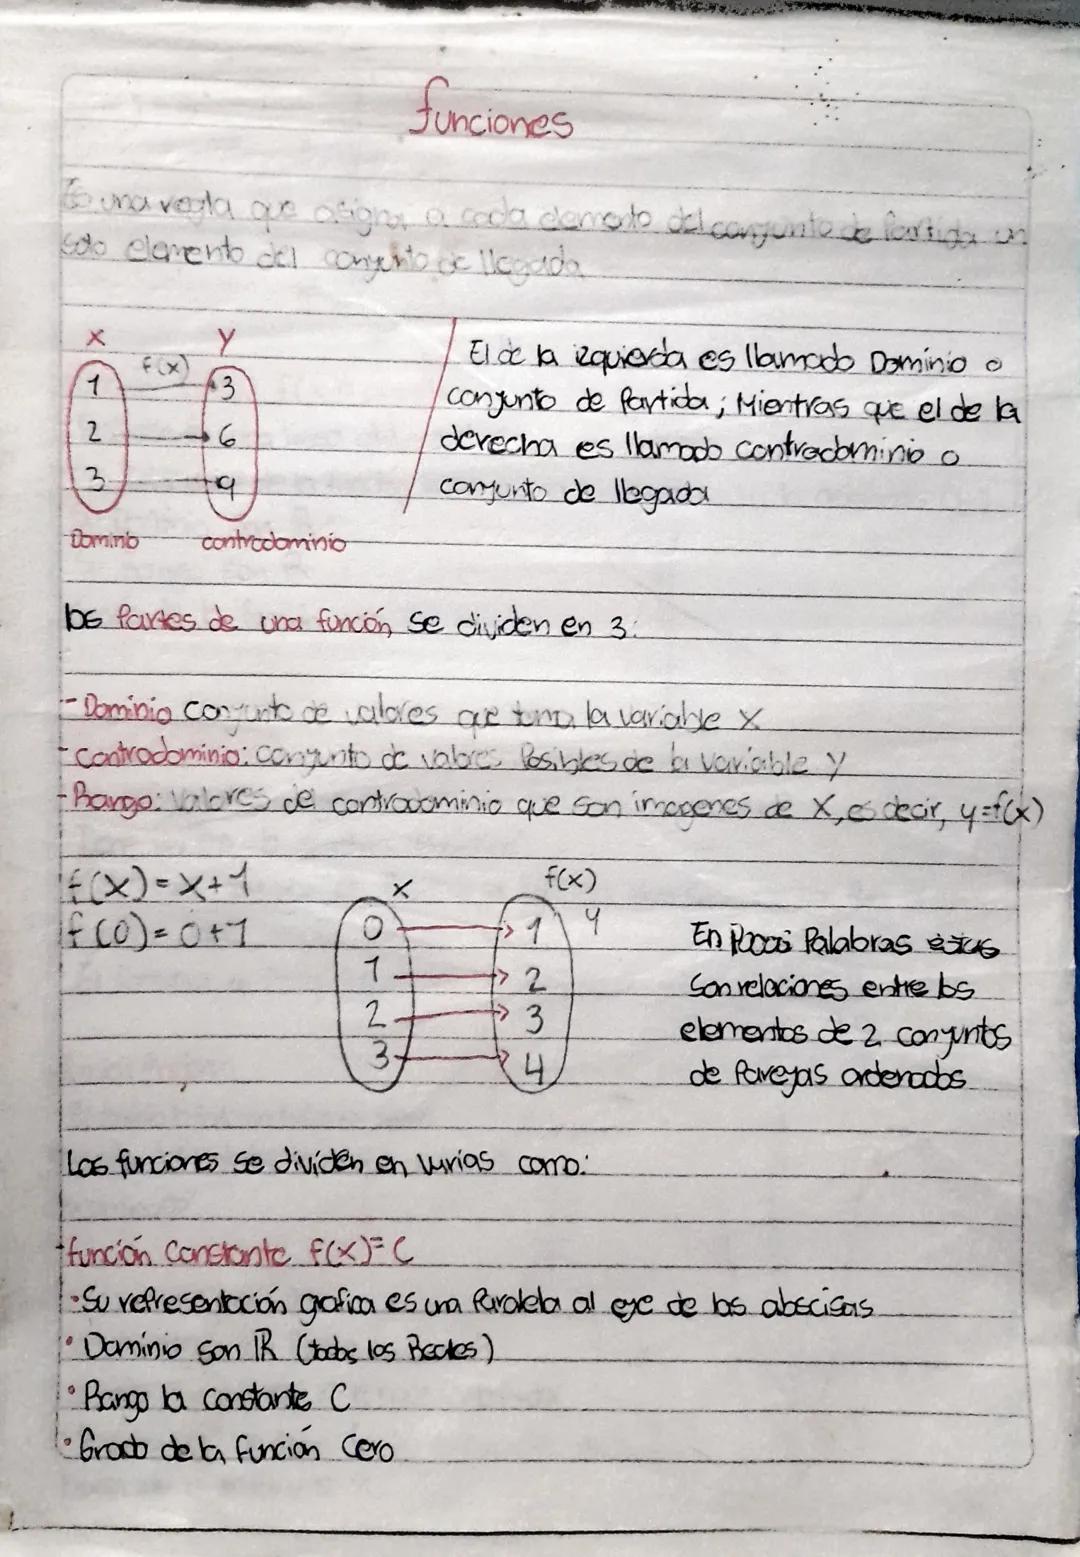 funciones
Es una regla que asigna a cada elemento del conjunto de Partida un
solo elemento del conjunto de llegada
X Y
f(x)
1 3
2 6
3 9
Dominio contradominio
El de la izquierda es llamado Dominio o
conjunto de Partida; Mientras que el de la
derecha es llamado contradominio o
conjunto de llegada
los Partes de una función se dividen en 3:
- Dominio conjunto de valores que toma la variable X
- Contradominio: conjunto de valores Posibles de la variable y
- Rango: Valores del contradominio que son imagenes de X, es decir, y=f(x)
f(x)=x+1
f(0)=0+1
x f(x)
y
0 1
1 2
2 3
3 4
En Pocas Palabras estas
Son relaciones entre los
elementos de 2 conjuntos
de Parejas ordenados
Las funciones se dividen en varias como:
función Constante f(x)=C
• Su representación grafica es una Paralela al eje de las abscisas
• Dominio son ℝ (todos los Reales)
• Rango la constante C
• Grado de la función Cero